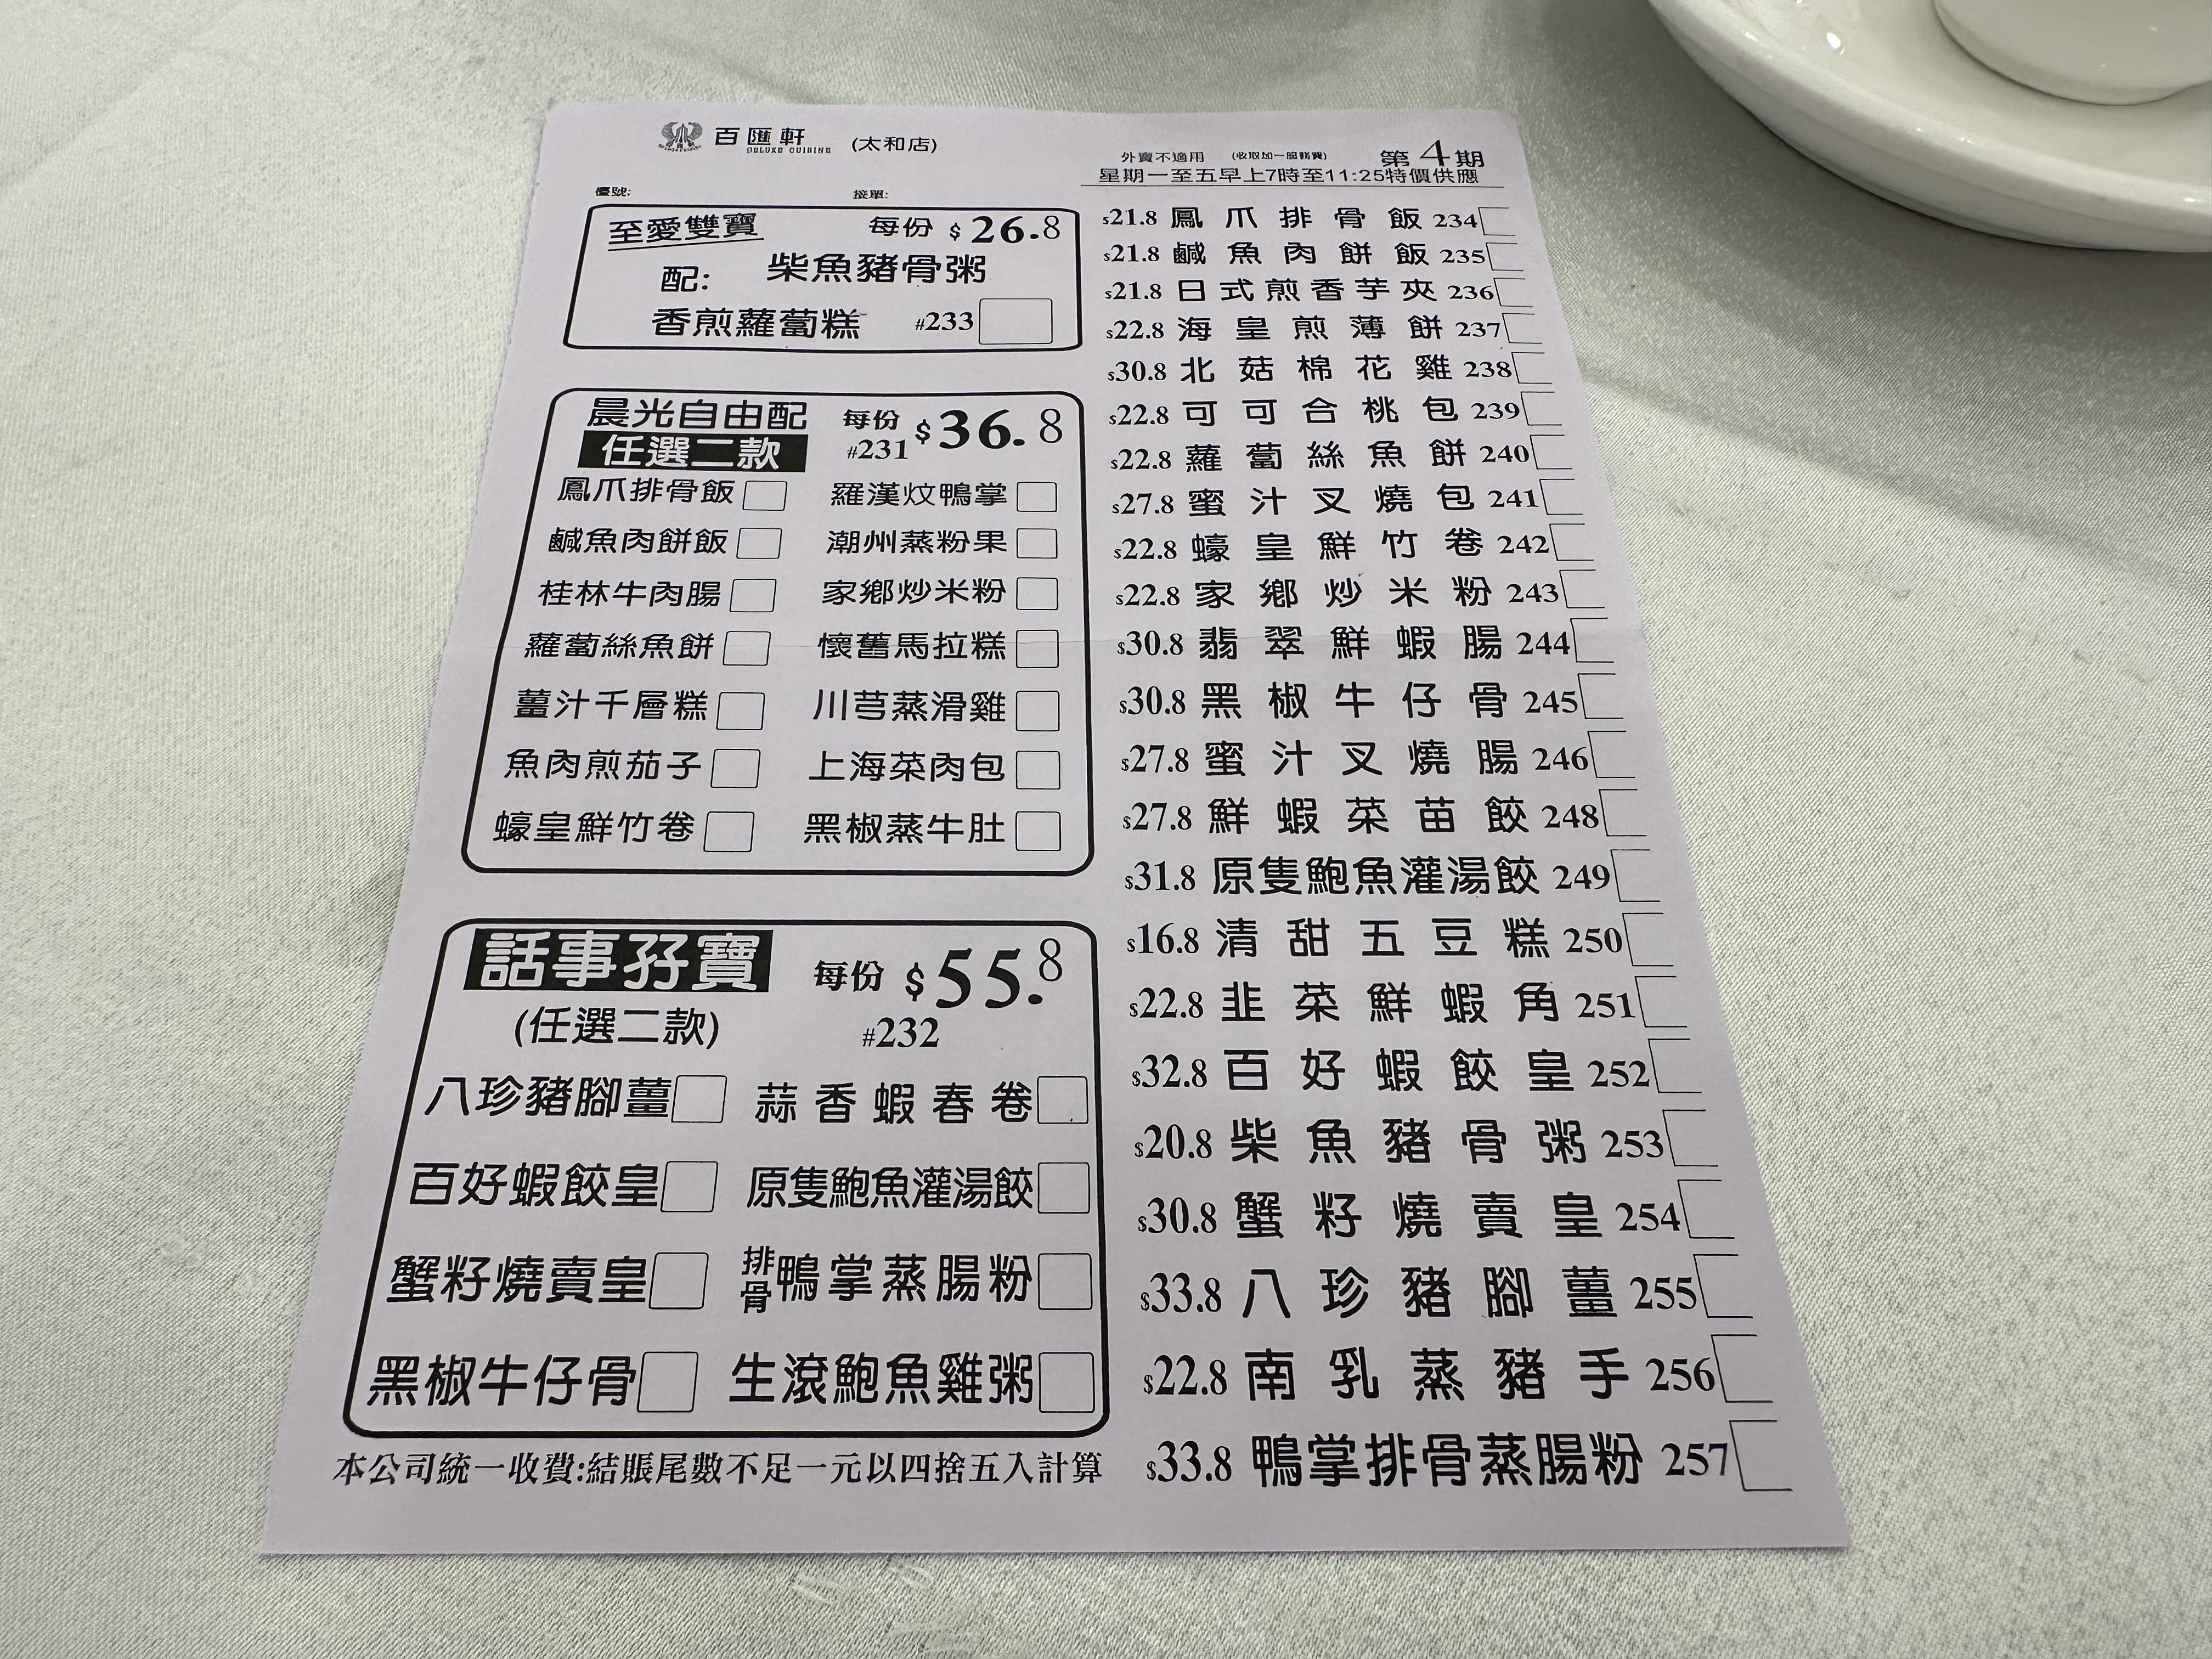 百匯軒 (太和店)
DELUXE CUISINE
檯號: 接單:
至愛雙寶 每份 $26.8
配: 柴魚豬骨粥
香煎蘿蔔糕 #233
晨光自由配 每份 $36.8
任選二款 #231
鳳爪排骨飯 羅漢炆鴨掌
鹹魚肉餅飯 潮州蒸粉果
桂林牛肉腸 家鄉炒米粉
蘿蔔絲魚餅 懷舊馬拉糕
薑汁千層糕 川芎蒸滑雞
魚肉煎茄子 上海菜肉包
蠔皇鮮竹卷 黑椒蒸牛肚
話事孖寶 每份 $55.8
(任選二款) #232
八珍豬腳薑 蒜香蝦春卷
百好蝦餃皇 原隻鮑魚灌湯餃
蟹籽燒賣皇 排骨鴨掌蒸腸粉
黑椒牛仔骨 生滾鮑魚雞粥
本公司統一收費:結賬尾數不足一元以四捨五入計算
外賣不適用 (收取加一服務費) 第4期
星期一至五早上7時至11:25特價供應
$21.8 鳳爪排骨飯 234
$21.8 鹹魚肉餅飯 235
$21.8 日式煎香芋夾 236
$22.8 海皇煎薄餅 237
$30.8 北菇棉花雞 238
$22.8 可可合桃包 239
$22.8 蘿蔔絲魚餅 240
$27.8 蜜汁叉燒包 241
$22.8 蠔皇鮮竹卷 242
$22.8 家鄉炒米粉 243
$30.8 翡翠鮮蝦腸 244
$30.8 黑椒牛仔骨 245
$27.8 蜜汁叉燒腸 246
$27.8 鮮蝦菜苗餃 248
$31.8 原隻鮑魚灌湯餃 249
$16.8 清甜五豆糕 250
$22.8 韭菜鮮蝦角 251
$32.8 百好蝦餃皇 252
$20.8 柴魚豬骨粥 253
$30.8 蟹籽燒賣皇 254
$33.8 八珍豬腳薑 255
$22.8 南乳蒸豬手 256
$33.8 鴨掌排骨蒸腸粉 257